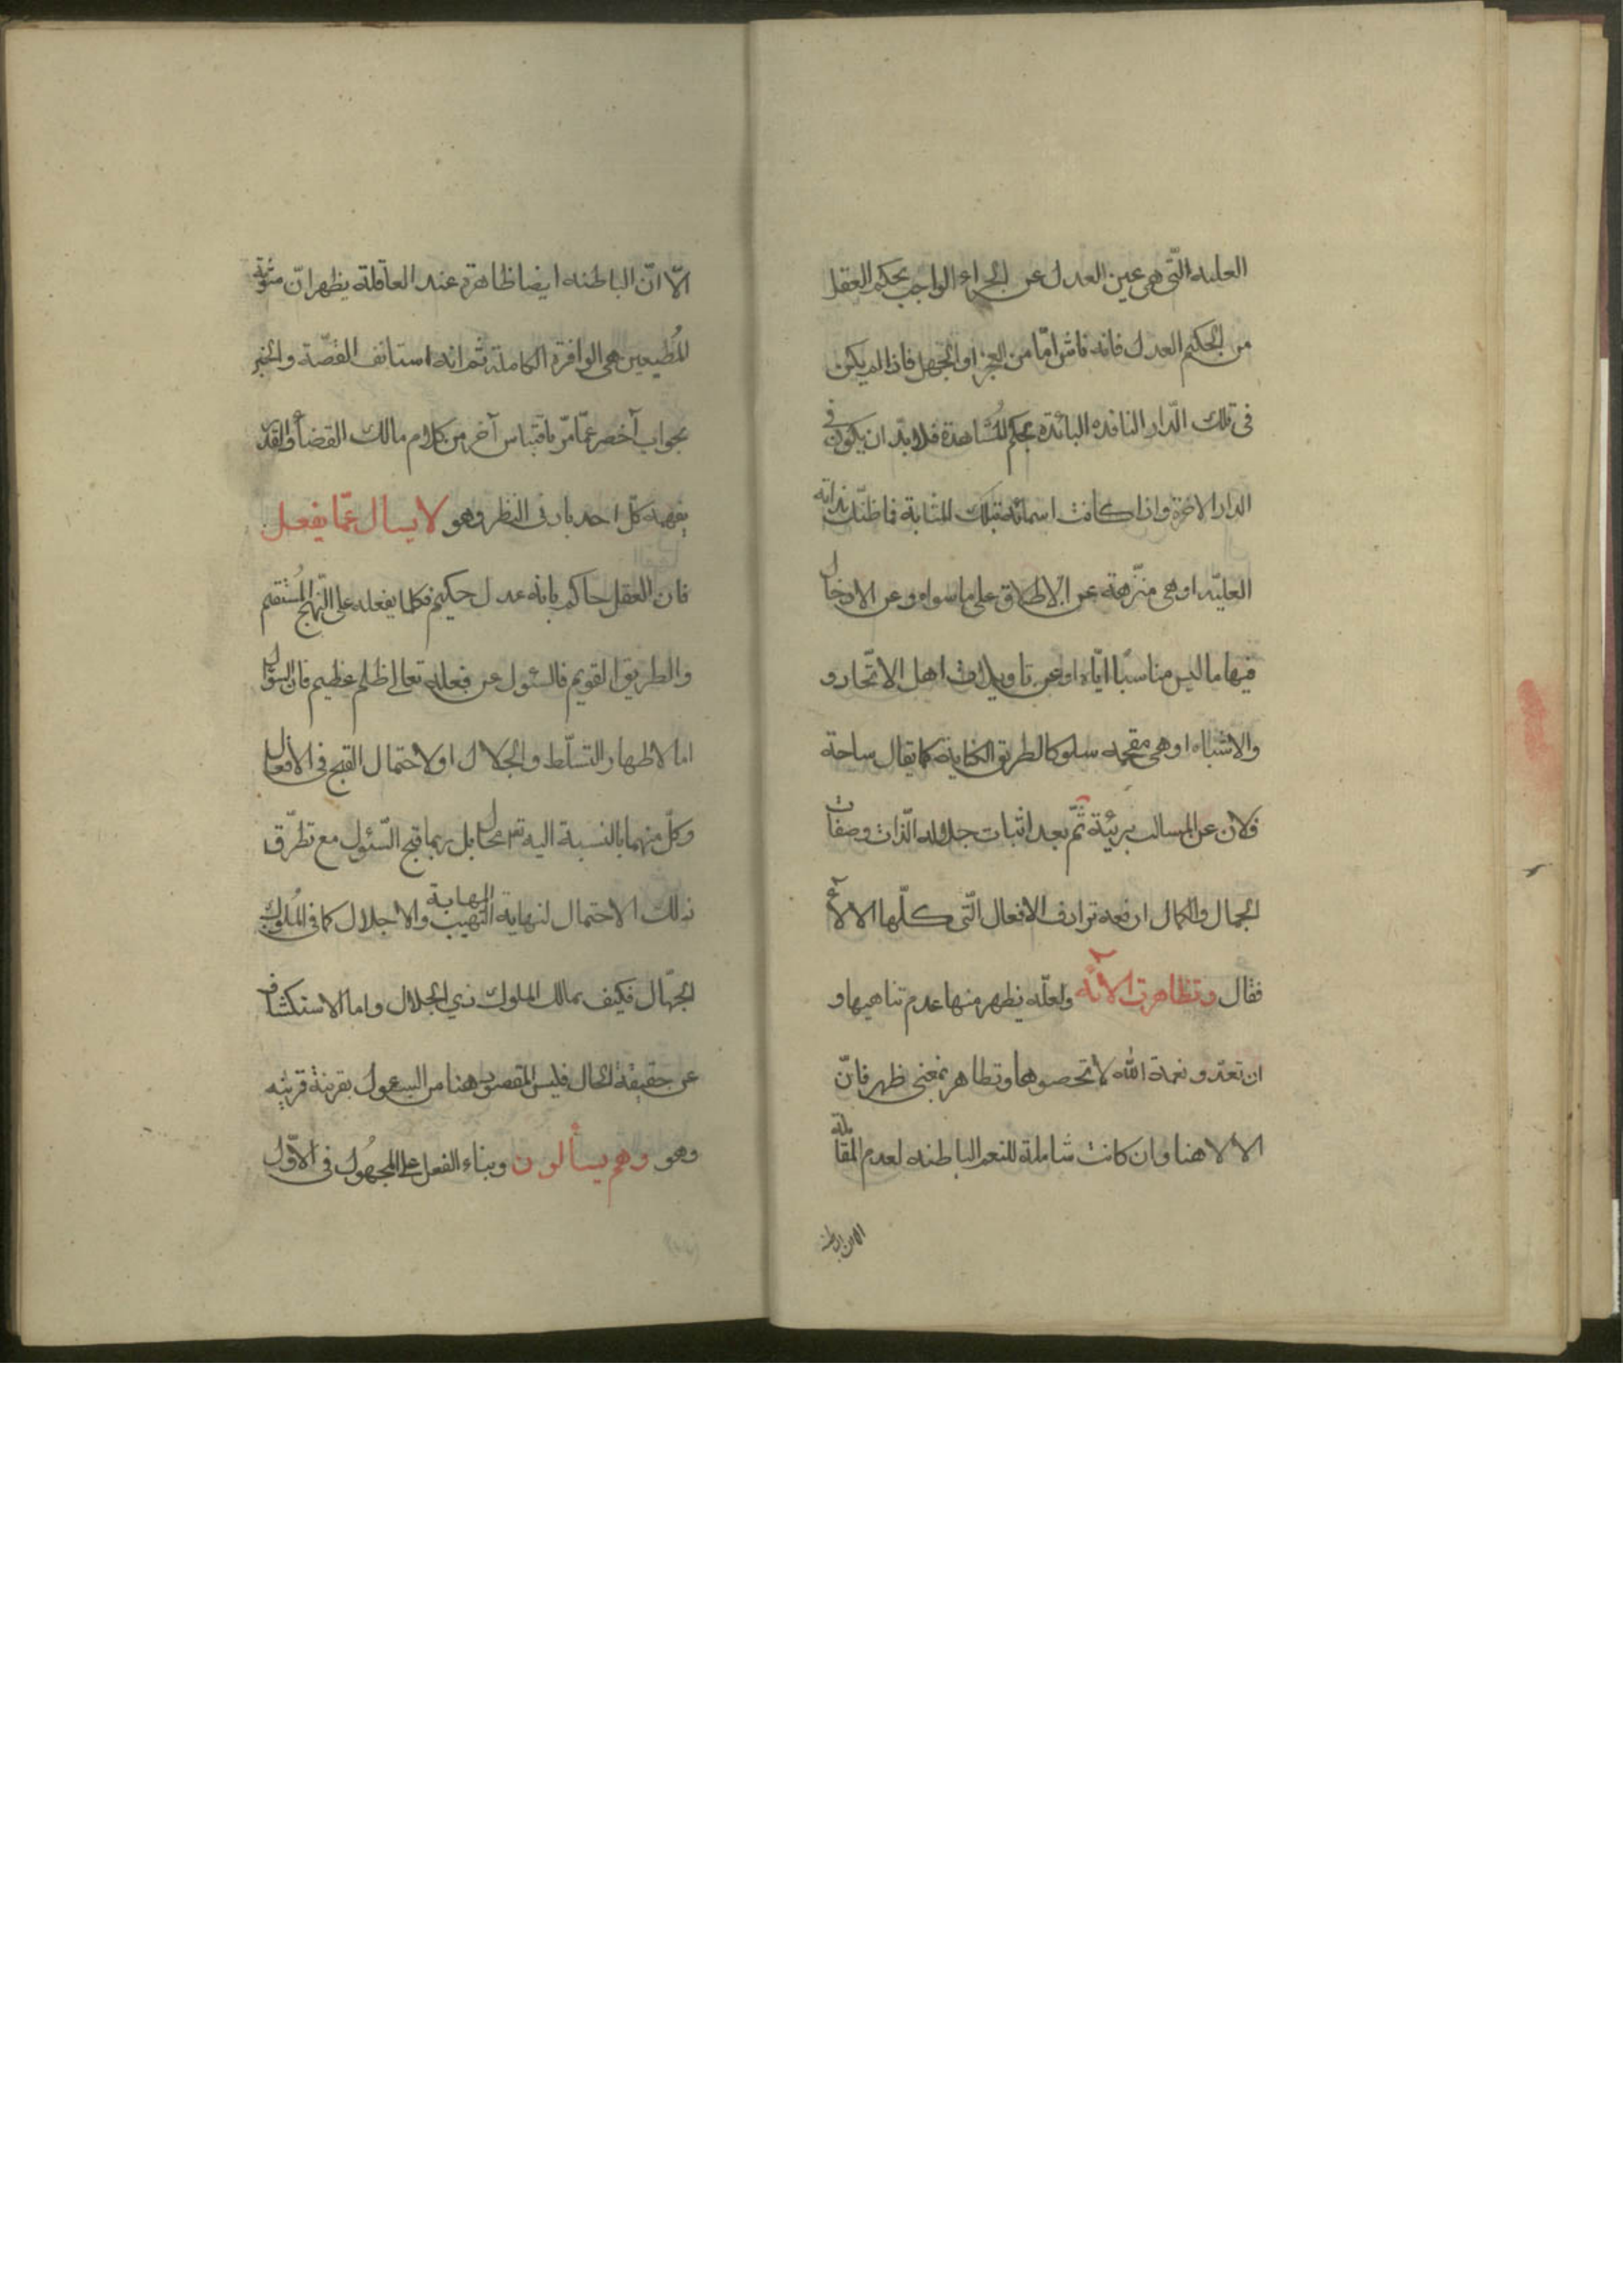 العليه الّتى هى عين العدل عن الجزاء الواجب بحكم العقل
من الحكيم العدل فانه ناش امّا من العجز او الجهل فاذا لم يكن
فى تلك الّدار النافده البائدة بحكم المُشاهدة فلا بدّ ان يكون فى
الدار الاخرة واذا كانت اسمائه بتلك المثابة فما ظنّك بذاته
العليّه او هى منزّهة عن الاطلاق على ما سواه و عن الادخال
فيها ما ليس مناسبًا ايّاه او عن تاويلات اهل الاتّحاد و
والاشباه او هى مقحمه سلوكا لطريق الكناية كما يقال ساحة
فلان عن المسالب بريئة ثمّ بعد اثبات جلاله الّذات وصفات
الجمال والكمال اردفه ترادف الافعال الّتى كلّها الالآء
فقال وتظاهرت الآئه ولعلّه يظهر منها عدم تناهيها و
ان تعدّو نعمة الله لا تحصوها وتظاهر بمعنى ظهر فانّ
الالا هنا وان كانت شاملة للنعم الباطنه لعدم المقابلة
الا ان الباطنه
الّا انّ الباطنه ايضا ظاهرة عند العاقلة يظهر انّ مثوبة
المُطيعين هى الوافرة الكاملة ثم انه استانف القصّة والخبر
بجواب آخصر عمّا مرّ باقتباس آخر من كلام مالك القضآء والقدر
يفهمه كلّ احد بادى النظر وهو لا يسال عمّا يفعل
فان العقل حاكم بانه عدل حكيم فكلما يفعله على النّهج المُستقيم
والطريق القويم فالسئول عن فعله تعالى ظلم عظيم فان السؤال
اما لاظهار التسلّط والجلال او لاحتمال القبح فى الافعال
وكلّ منهما بالنسبة اليه تع محال بل ربما قبح السّئول مع تطرّق
ذلك الاحتمال لنهاية التهيب المهابة والاجلال كما فى المُلوك
الجهّال فكيف بمالك الملوك ذي الجلال واما الاستكشاف
عن حقيقة الحال فليس المقصود هنا من السئول بقرينة قرينه
وهو وهم يسألون وبناء الفعل على المجهُول فى الاوّل